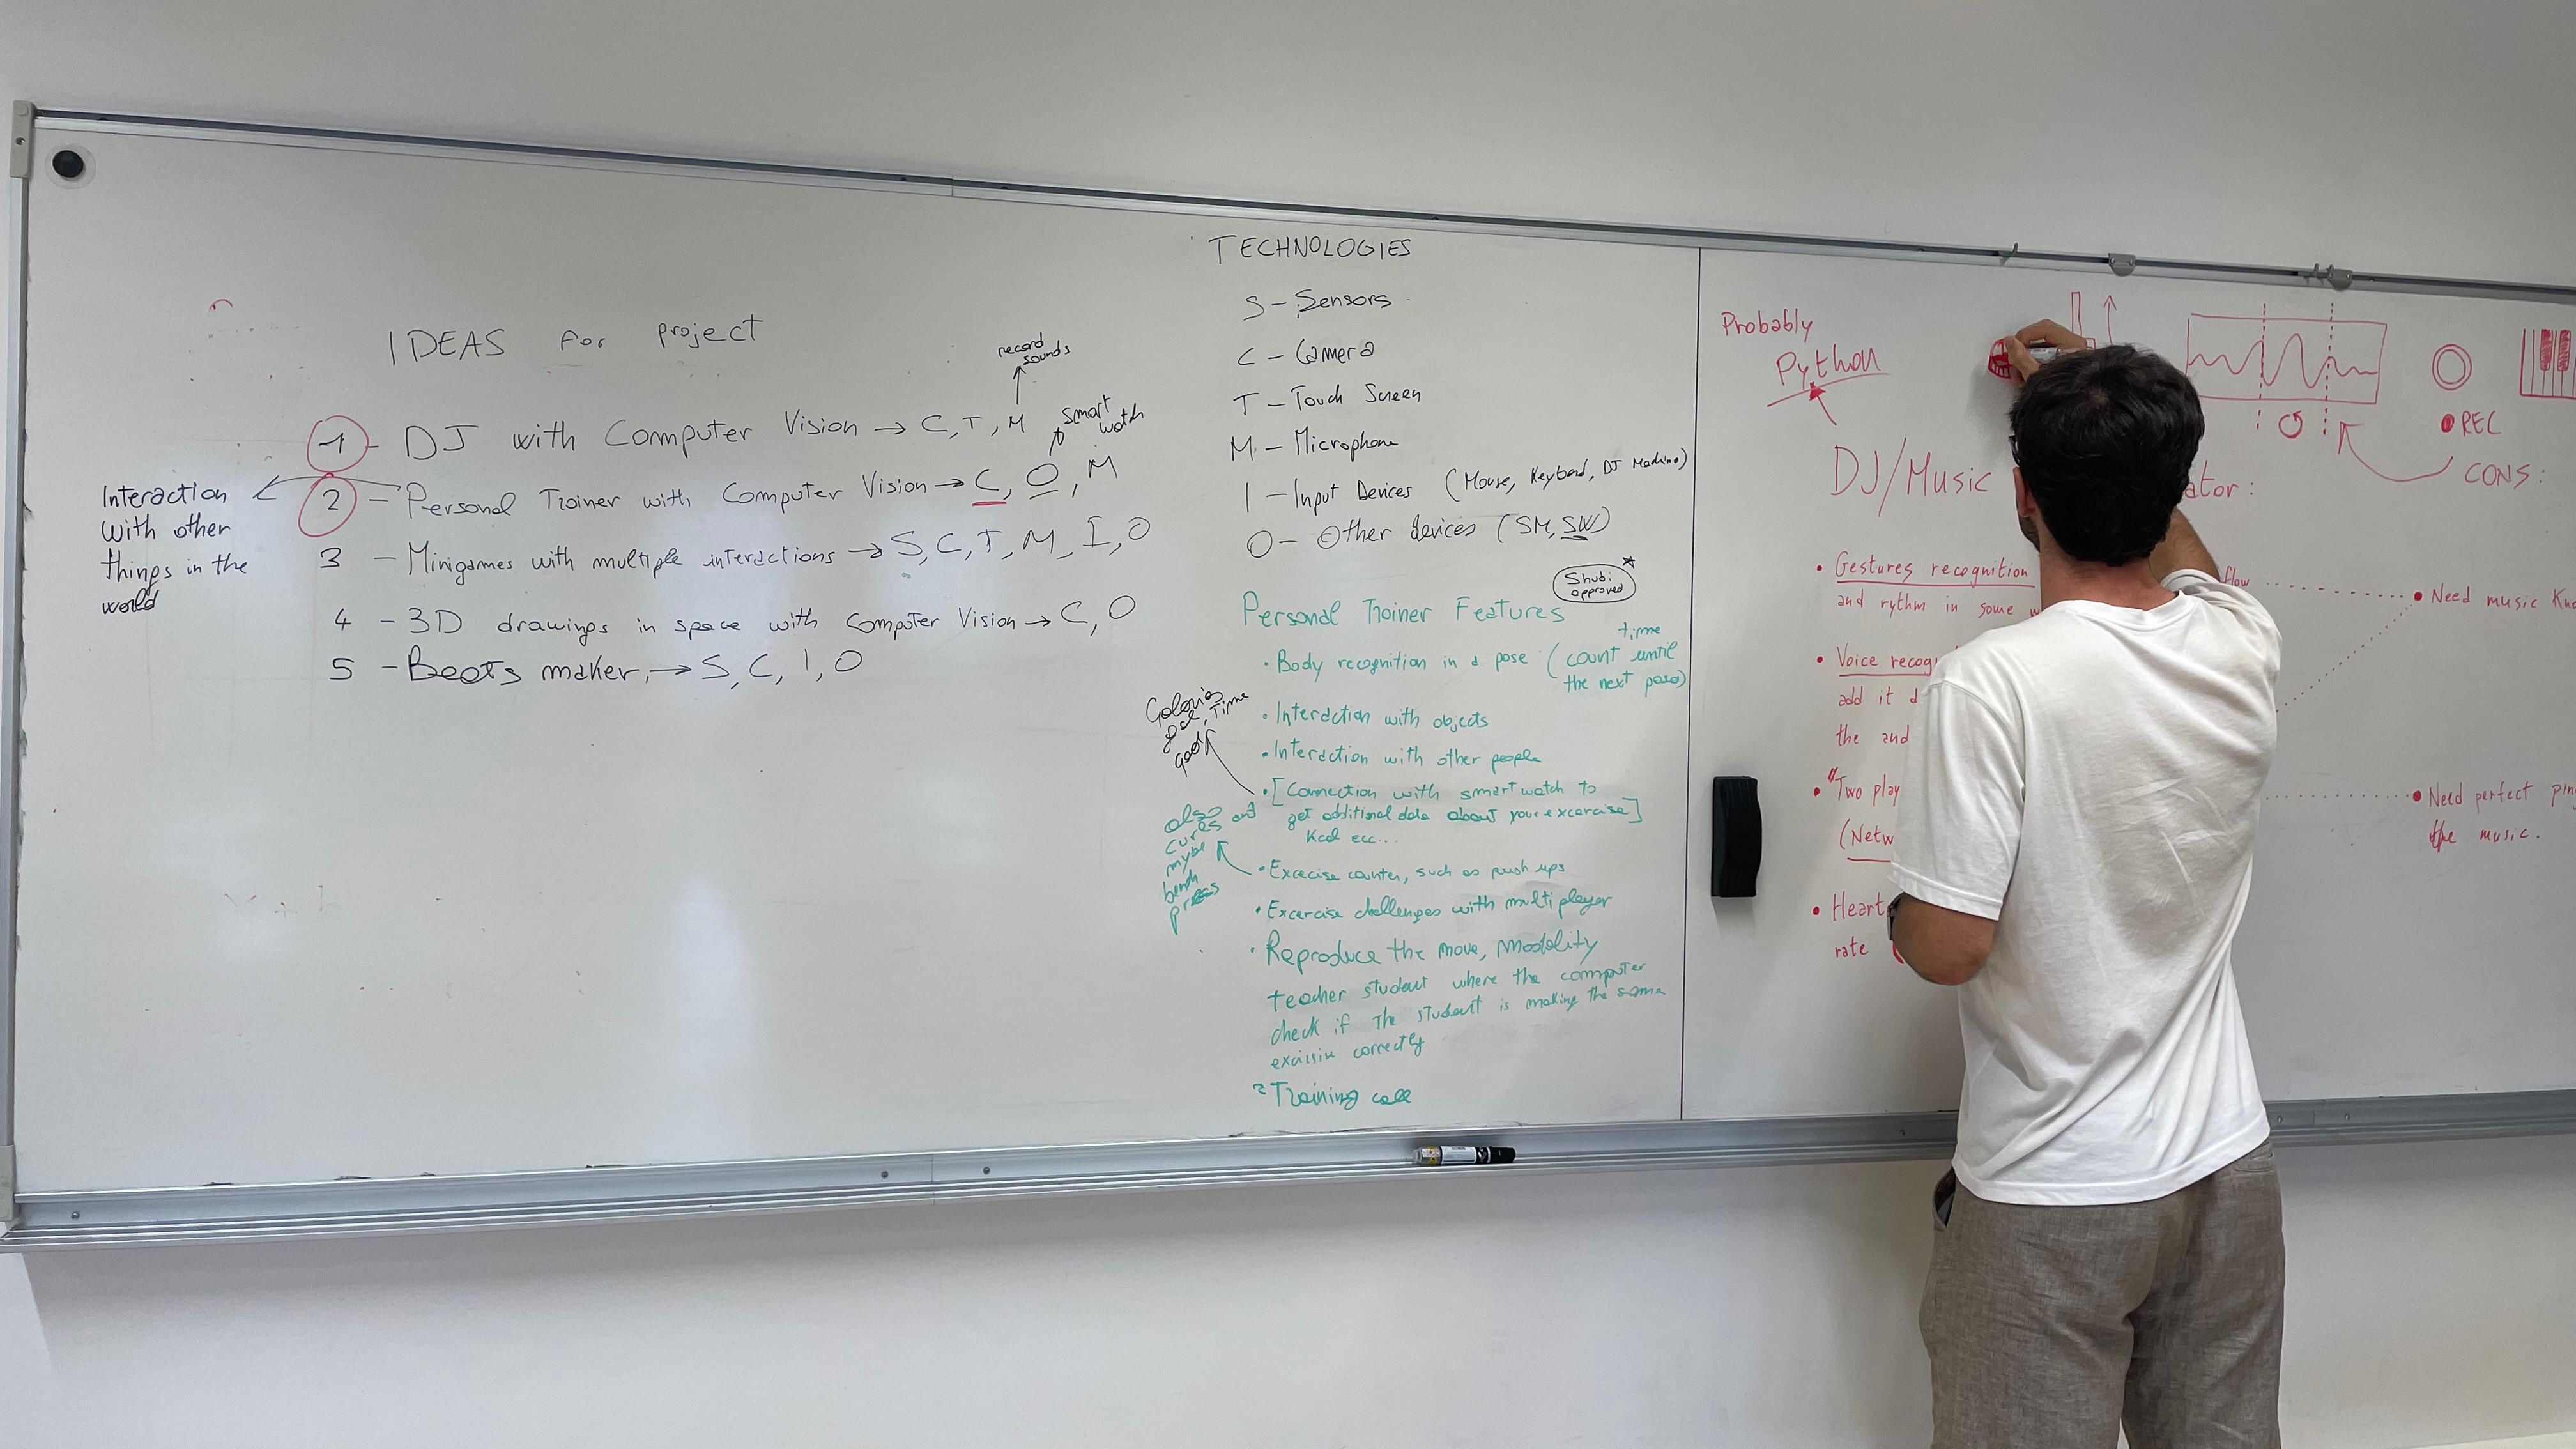 IDEAS for project
record
sounds
1 - DJ with Computer Vision → C, T, M
smart
watch
2 - Personal Trainer with Computer Vision → C, O, M
Interaction
with other
things in the
world
3 - Minigames with multiple interactions → S, C, T, M, I, O
4 - 3D drawings in space with Computer Vision → C, O
5 - Beats maker, → S, C, I, O
TECHNOLOGIES
S - Sensors
C - Camera
T - Touch Screen
M - Microphone
I - Input Devices (Mouse, Keyboard, DJ Machine)
O - Other devices (SM, SW)
Shubi
approved
Personal Trainer Features
• Body recognition in a pose (time
count until
the next pose)
• Interaction with objects
• Interaction with other people
• [Connection with smartwatch to
get additional data about your excercise]
Kcal ecc...
goal, Time
goal
• Excecise counter, such as push ups
also and
curls
mybe
bench
press
• Excercise challenges with multiplayer
• Reproduce the move, modality
teacher student where the computer
check if the student is making the same
correctly
Training call
Probably
Python
REC
DJ/Music ator:
CONS:
• Gestures recognition flow
and rythm in some
• Voice recog
add it
the and
• "Two play
(Netw
• Heart
rate
• Need music
• Need perfect
the music.